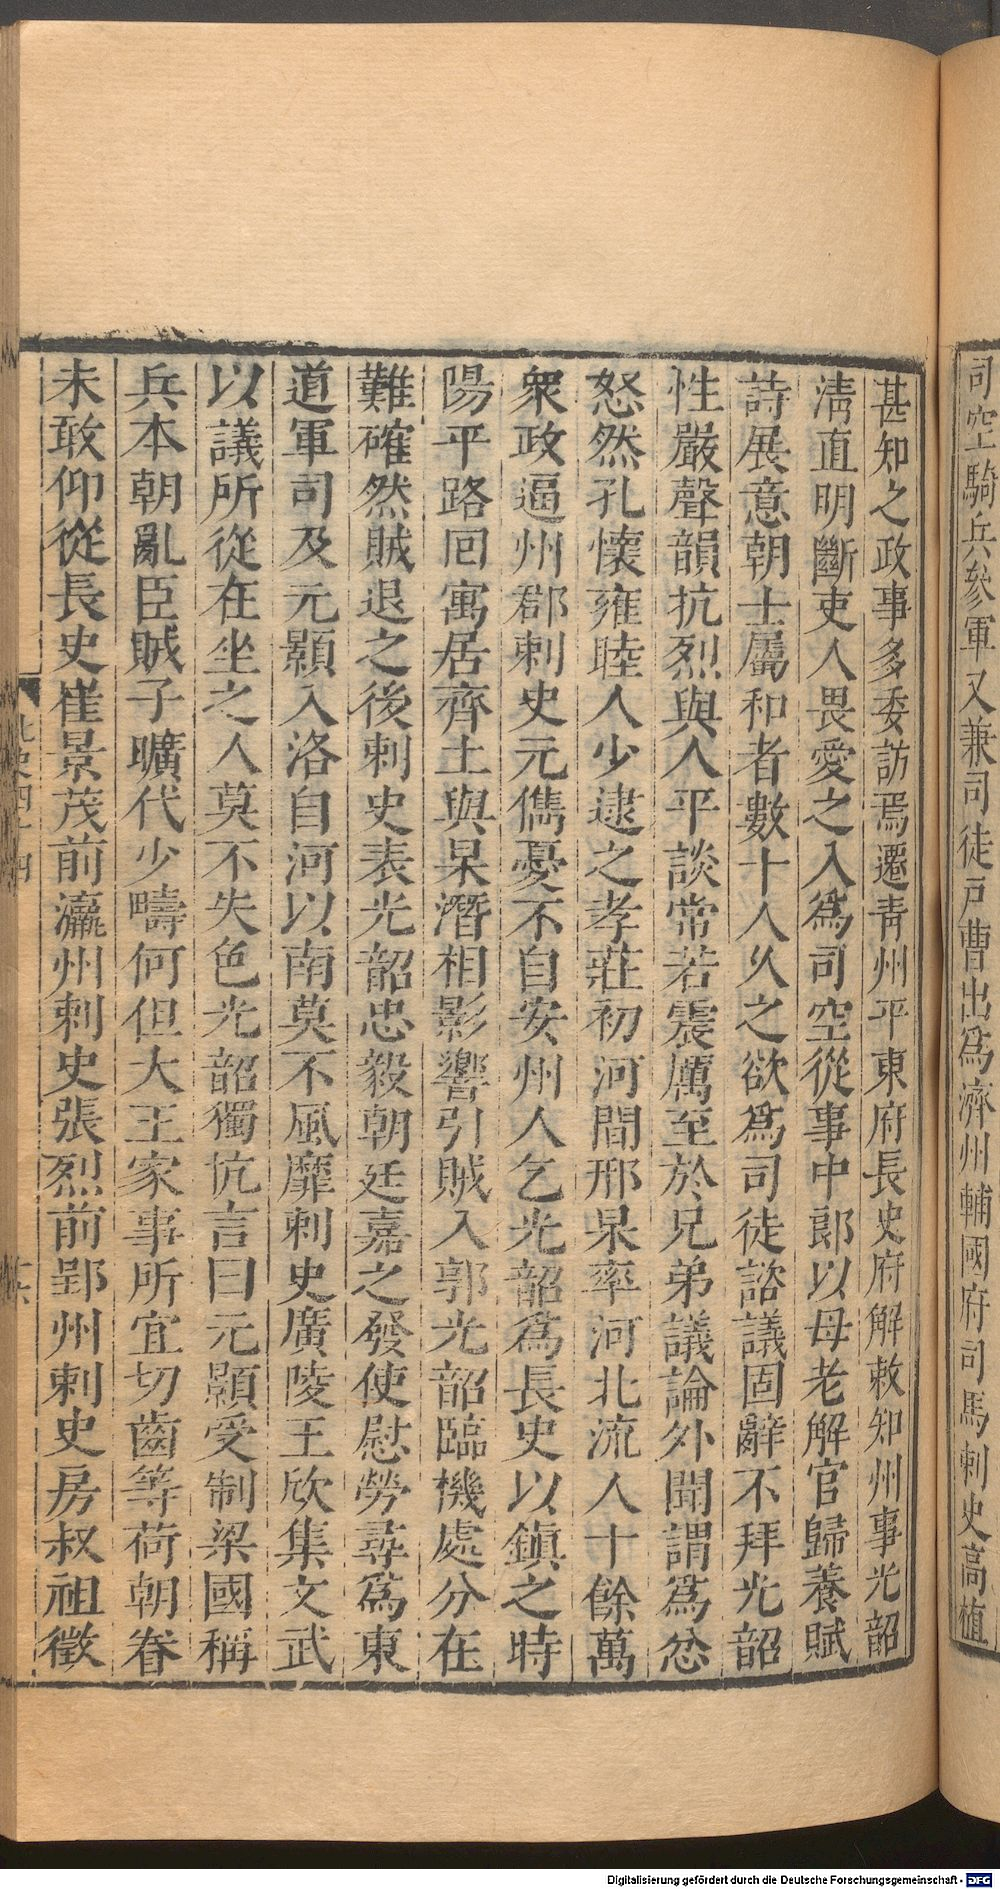 司空騎兵參軍又兼司徒戸曹出爲濟州輔國府司馬刺史高植
甚知之政事多委訪焉遷青州平東府長史府解敕知州事光韶
淸直明斷吏人畏愛之入爲司空從事中郎以母老解官歸養賦
詩展意朝士屬和者數十人久之欲爲司徒諮議固辭不拜光韶
性嚴聲韻抗烈與人平談常若震厲至於兄弟議論外聞謂爲忿
怒然孔懷雍睦人少逮之孝莊初河間邢杲率河北流人十餘萬
衆政逼州郡刺史元儁憂不自安州人乞光韶爲長史以鎮之時
陽平路回寓居齊土與杲潛相影響引賊入郭光韶臨機處分在
難確然賊退之後刺史表光韶忠毅朝廷嘉之發使慰勞尋爲東
道軍司及元顥入洛自河以南莫不風靡刺史廣陵王欣集文武
以議所從在坐之人莫不失色光韶獨抗言曰元顥受制梁國稱
兵本朝亂臣賊子曠代少疇何但大王家事所宜切齒等荷朝眷
未敢仰從長史崔景茂前瀛州刺史張烈前郢州刺史房叔祖徵
北史四十四
Digitalisierung gefördert durch die Deutsche Forschungsgemeinschaft - DFG